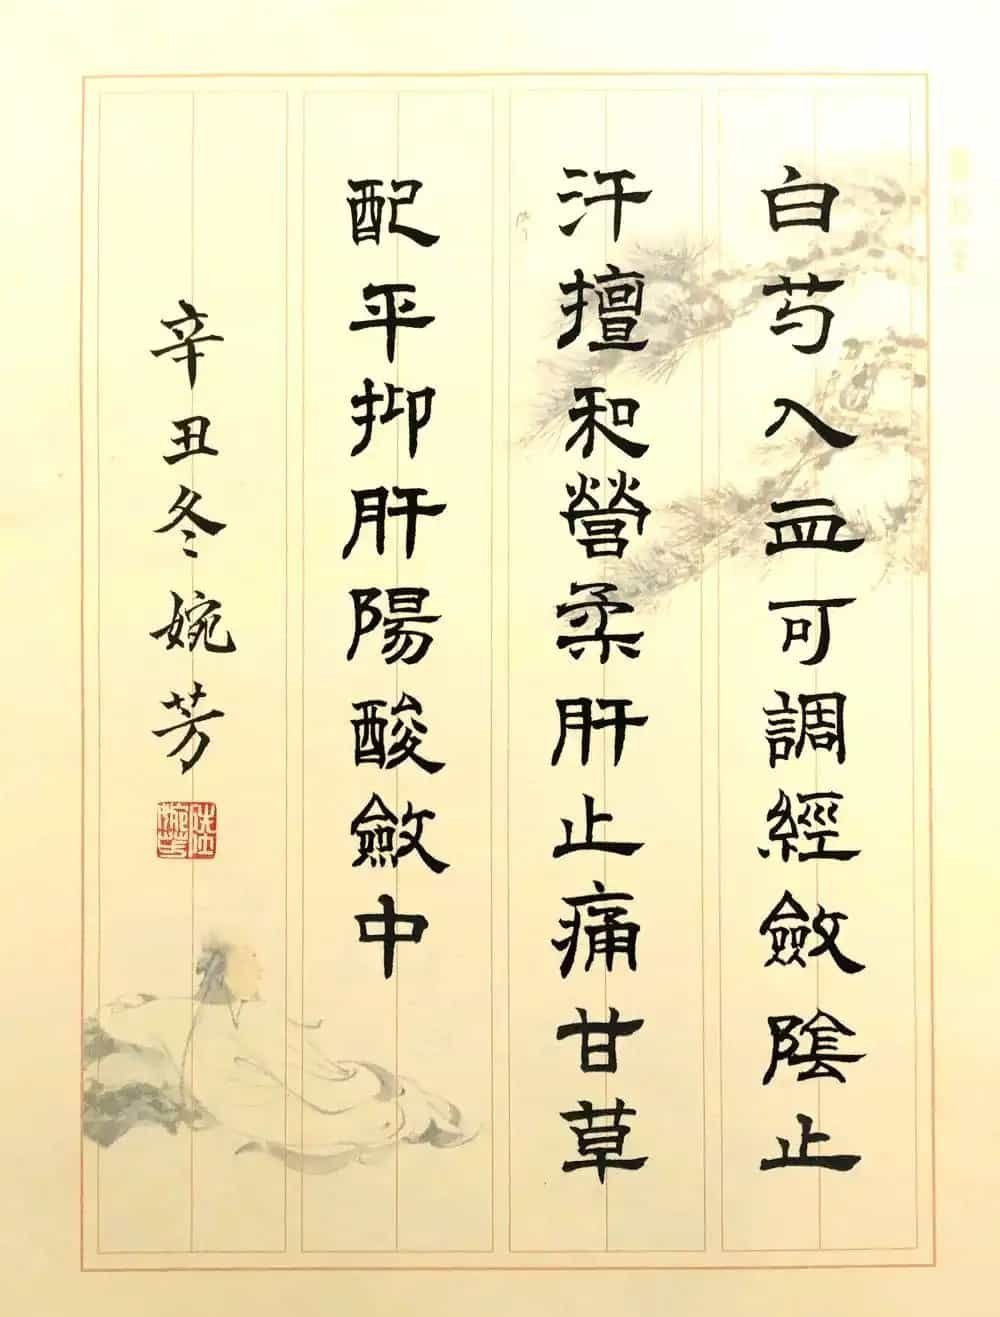 白芍入血可調經斂陰止
汗擅和營柔肝止痛甘草
配平抑肝陽酸斂中
辛丑冬婉芳